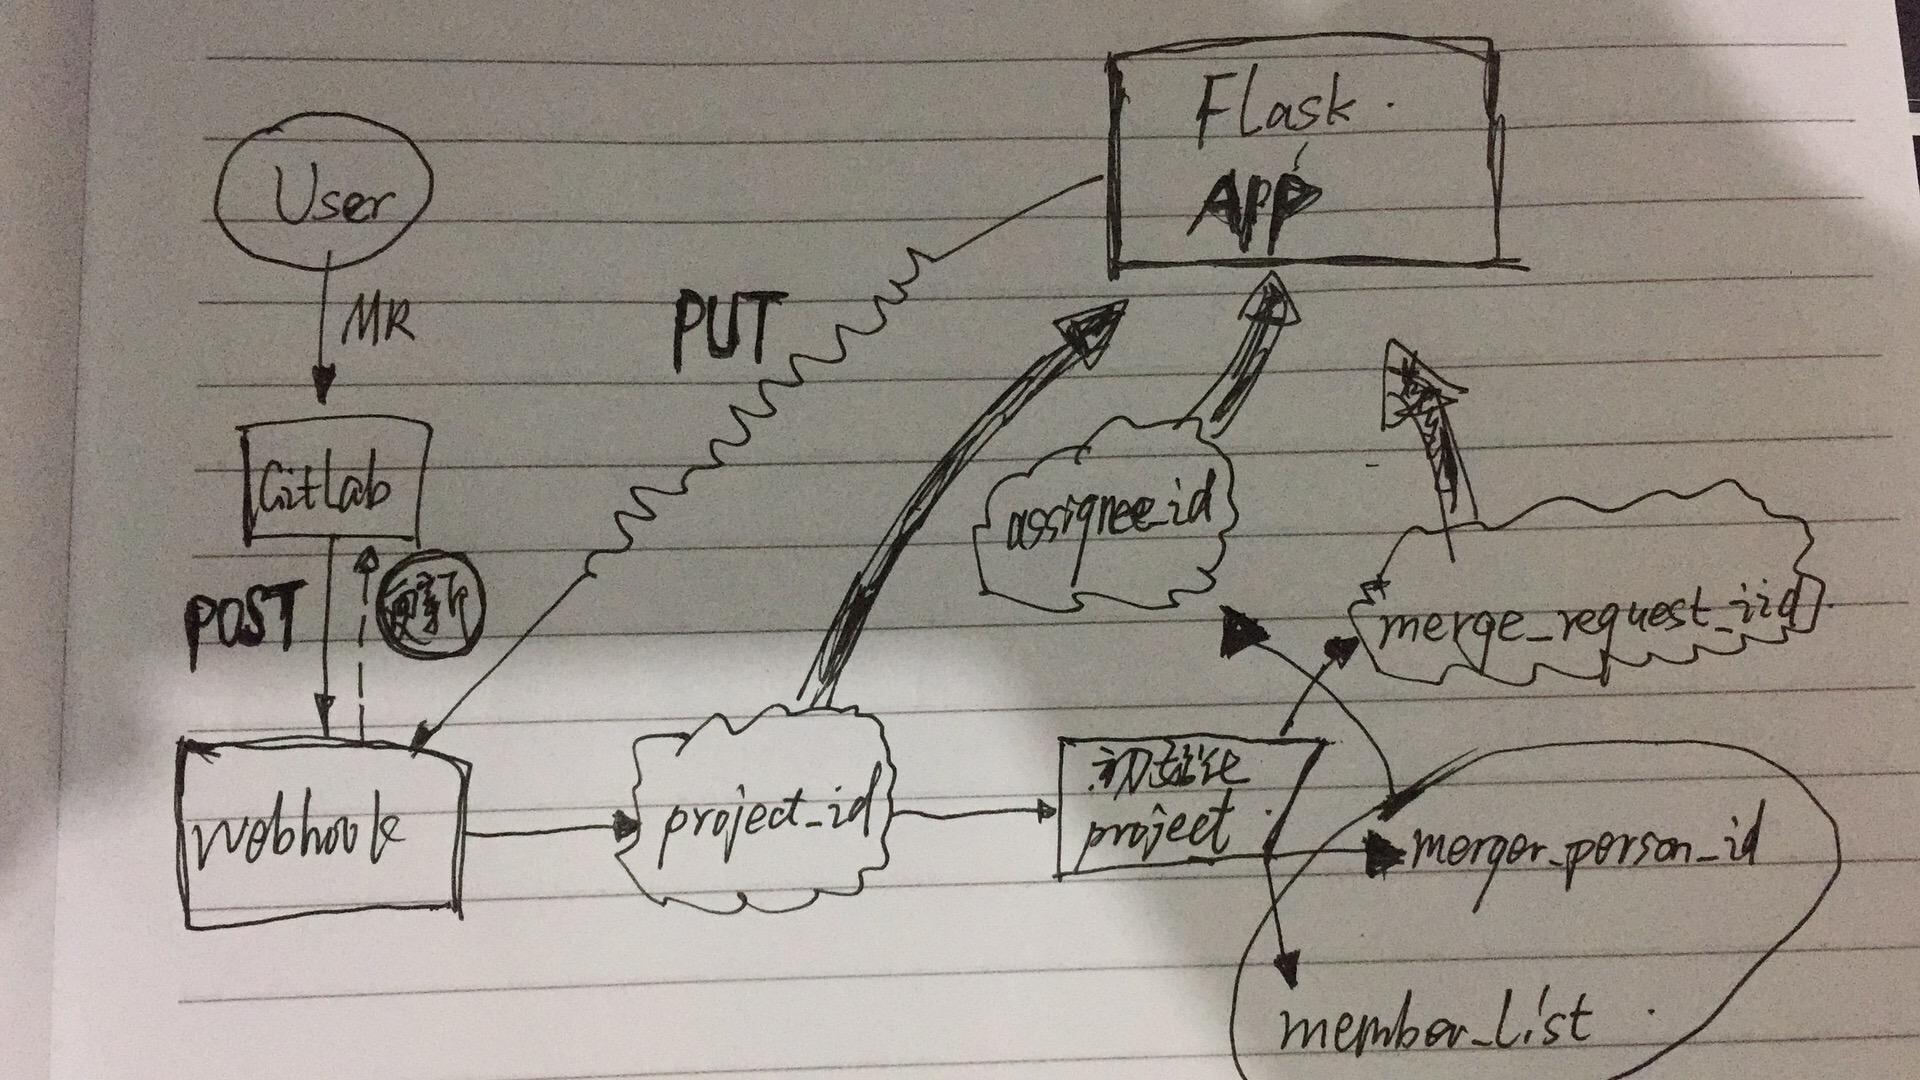 User
MR
GitLab
POST
更新
Webhook
PUT
Flask
APP
project_id
assignee_id
merge_request_iid
初始化
project
merger_person_id
member_list